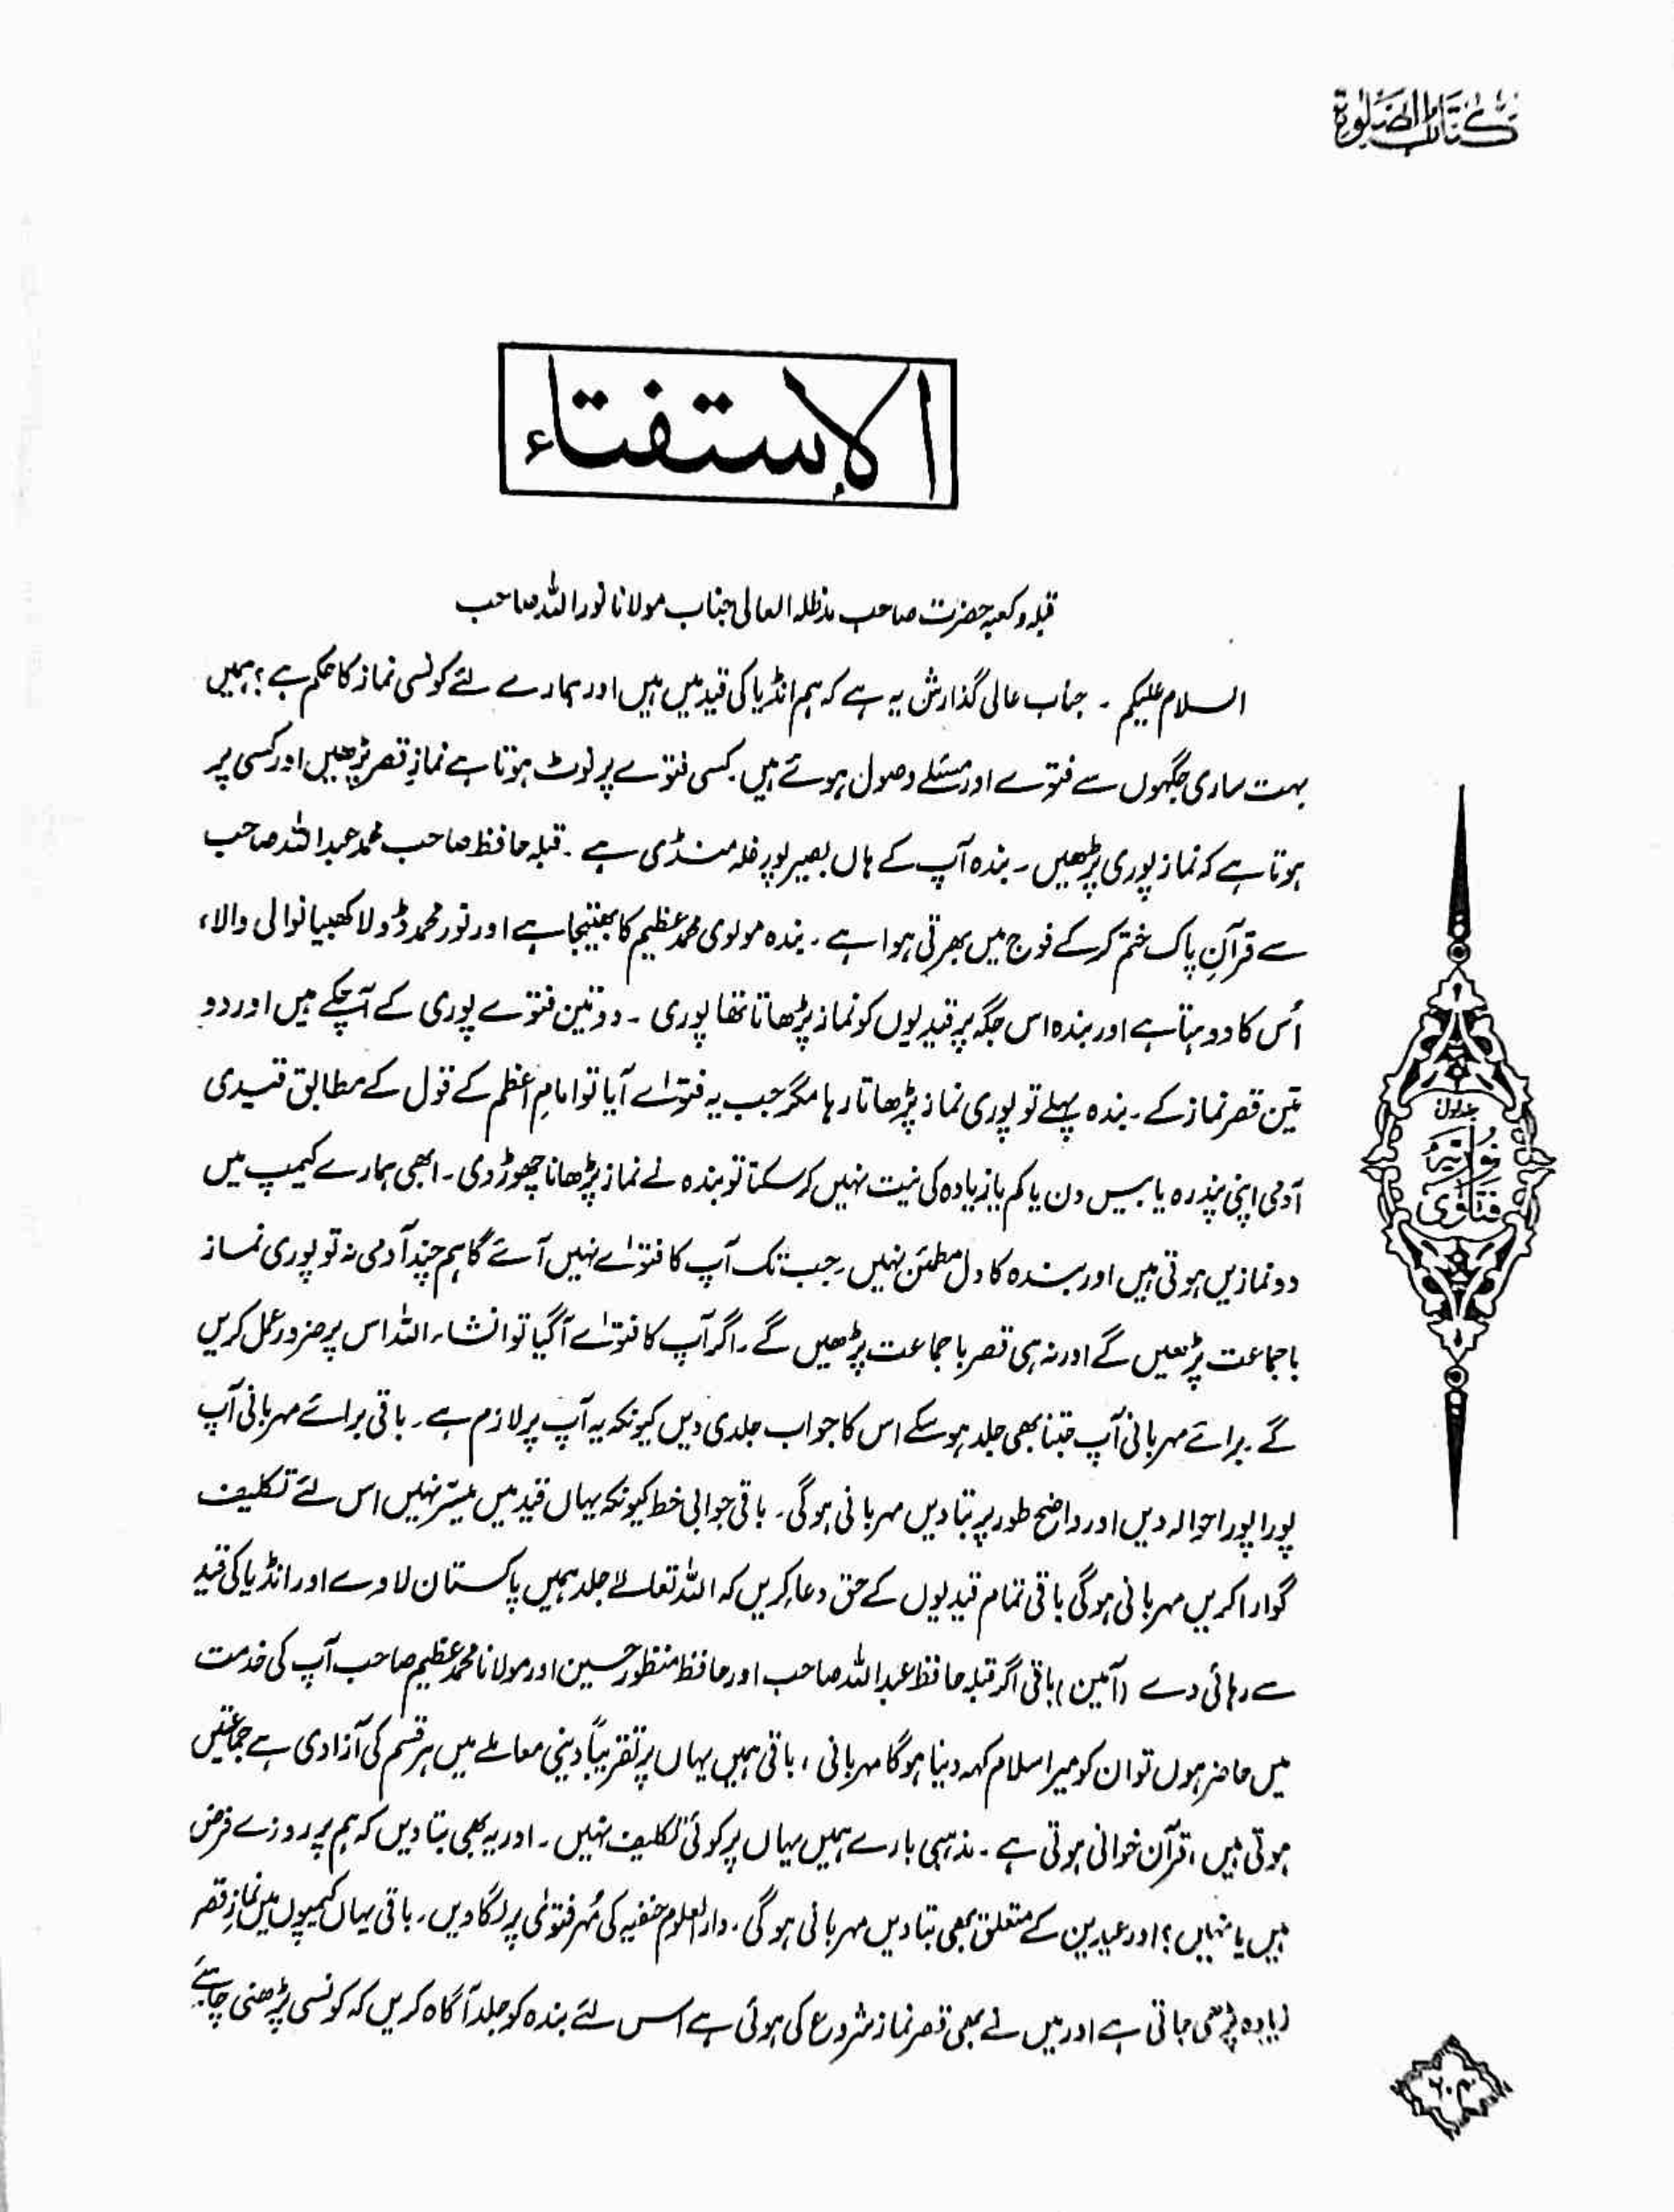 كتاب الصلوة
الإستفتاء
قبلہ وکعبہ حضرت صاحب مدظلہ العالی جناب مولانا نور اللہ صاحب
السلام علیکم ۔ جناب عالی گذارش یہ ہے کہ ہم انڈیا کی قید میں ہیں اور ہمارے لئے کونسی نماز کا حکم ہے ؟ ہمیں
بہت ساری جگہوں سے فتوے اور مسئلے وصول ہوئے ہیں ۔ کسی فتوے پر نوٹ ہوتا ہے نمازِ قصر پڑھیں اور کسی پر
ہوتا ہے کہ نماز پوری پڑھیں ۔ بندہ آپ کے ہاں بصیر پور غلہ منڈی سے ۔ قبلہ حافظ صاحب محمد عبد اللہ صاحب
سے قرآنِ پاک ختم کر کے فوج میں بھرتی ہوا ہے ۔ بندہ مولوی محمد عظیم کا بھتیجا ہے اور نور محمد ڈولا کھبیانوالی والا،
اُس کا دوہتا ہے اور بندہ اس جگہ پر قیدیوں کو نماز پڑھاتا تھا پوری ۔ دو تین فتوے پوری کے آ چکے ہیں اور دو
تین قصر نماز کے ۔ بندہ پہلے تو پوری نماز پڑھاتا رہا مگر جب یہ فتوٰے آیا تو امامِ اعظم کے قول کے مطابق قیدی
آدمی اپنی پندرہ یا بیس دن یا کم یا زیادہ کی نیت نہیں کر سکتا تو بندہ نے نماز پڑھانا چھوڑ دی ۔ ابھی ہمارے کیمپ میں
دو نمازیں ہوتی ہیں اور بندہ کا دل مطمئن نہیں ۔ جب تک آپ کا فتوٰے نہیں آئے گا ہم چند آدمی نہ تو پوری نماز
باجماعت پڑھیں گے اور نہ ہی قصر باجماعت پڑھیں گے ۔ اگر آپ کا فتوٰے آ گیا تو انشاء اللہ اس پر ضرور عمل کریں
گے ۔ برائے مہربانی آپ جتنا بھی جلد ہو سکے اس کا جواب جلدی دیں کیونکہ یہ آپ پر لازم ہے ۔ باقی برائے مہربانی آپ
پورا پورا حوالہ دیں اور واضح طور پر بتا دیں مہربانی ہوگی ۔ باقی جوابی خط کیونکہ یہاں قید میں میسّر نہیں اس لئے تکلیف
گوارا کریں مہربانی ہوگی باقی تمام قیدیوں کے حق دعا کریں کہ اللہ تعالےٰ جلد ہمیں پاکستان لاوے اور انڈیا کی قید
سے رہائی دے (آمین) باقی اگر قبلہ حافظ عبد اللہ صاحب اور حافظ منظور حسین اور مولانا محمد عظیم صاحب آپ کی خدمت
میں حاضر ہوں تو ان کو میرا سلام کہہ دینا ہوگا مہربانی ، باقی ہمیں یہاں پر تقریباً دینی معاملے میں ہر قسم کی آزادی ہے جماعتیں
ہوتی ہیں ، قرآن خوانی ہوتی ہے ۔ مذہبی بارے ہمیں یہاں پر کوئی تکلیف نہیں ۔ اور یہ بھی بتا دیں کہ ہم پر روزے فرض
ہیں یا نہیں ؟ اور عیدین کے متعلق بھی بتا دیں مہربانی ہوگی ۔ دارالعلوم حنفیہ کی مُہر فتوٰی پر لگا دیں ۔ باقی یہاں کیمپوں میں نمازِ قصر
زیادہ پڑھی جاتی ہے اور میں نے بھی قصر نماز شروع کی ہوئی ہے اس لئے بندہ کو جلد آگاہ کریں کہ کونسی پڑھنی چاہئے
جلد اول
فتاوی نوریہ